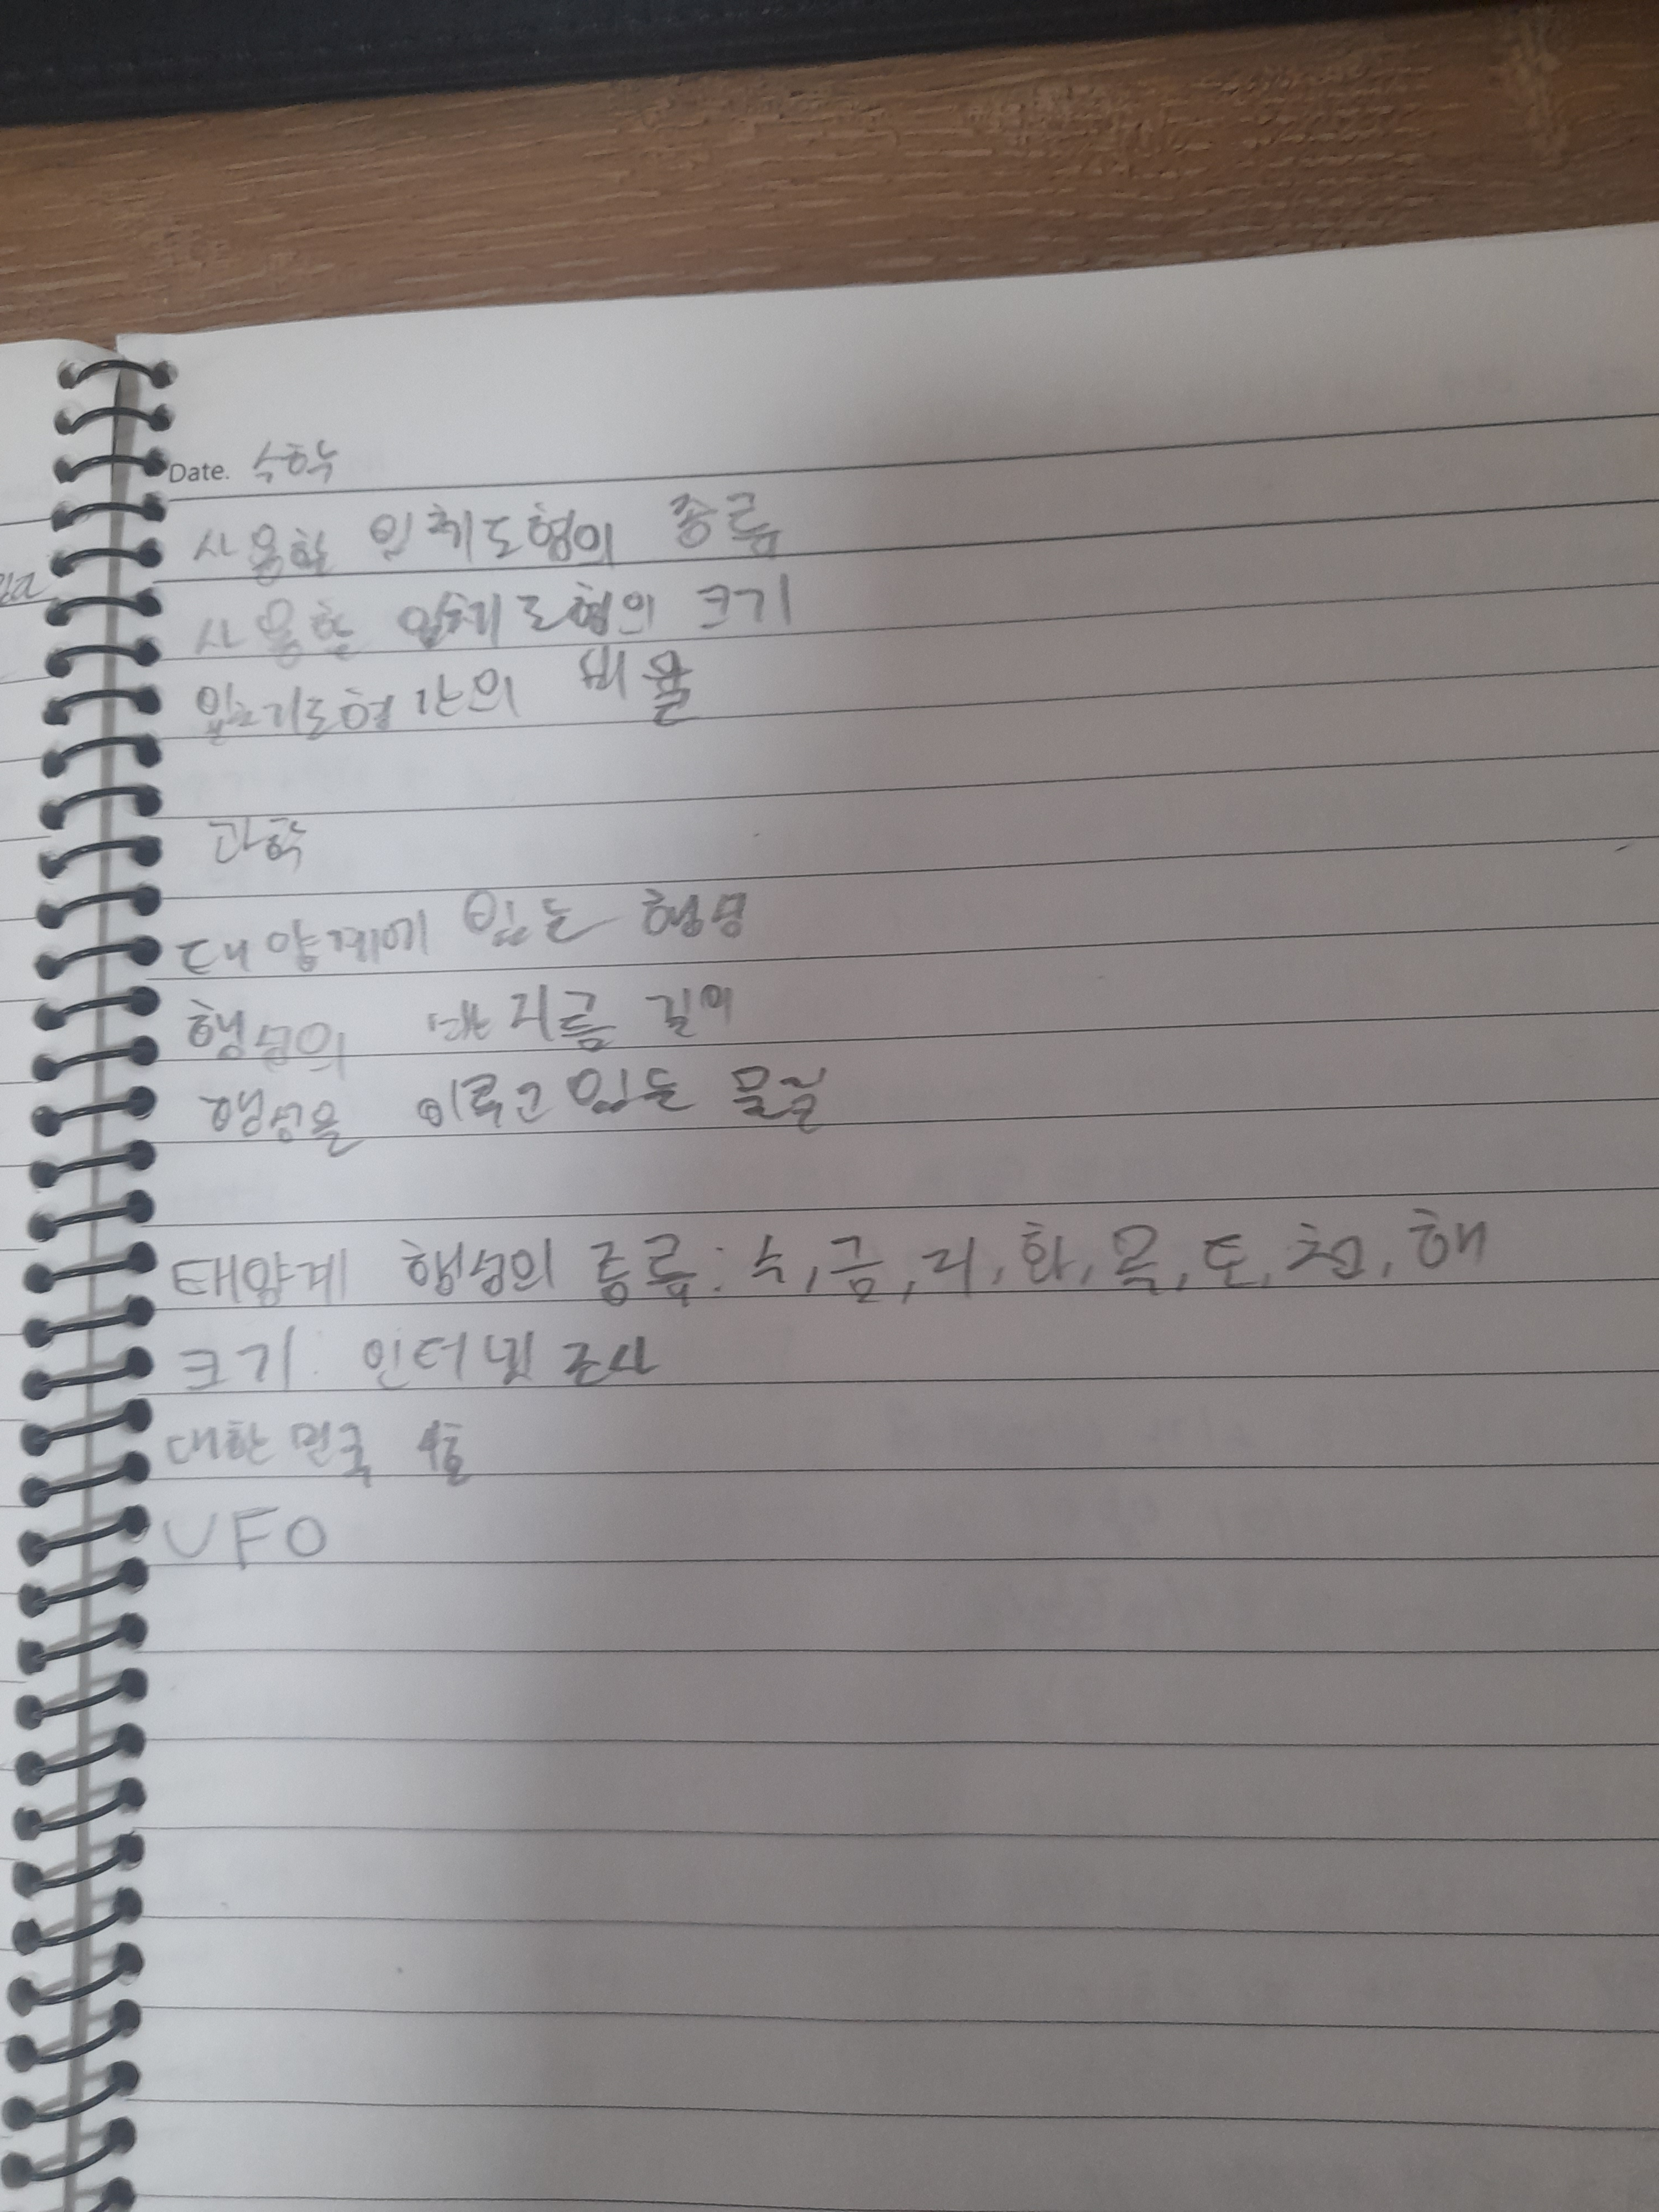 Date. 수학
사용할 입체도형의 종류
사용할 입체도형의 크기
입체도형 간의 비율
과학
태양계에 있는 행성
행성의 반지름 길이
행성을 이루고 있는 물질
태양계 행성의 종류: 수, 금, 지, 화, 목, 토, 천, 해
크기: 인터넷 조사
대한민국 1호
UFO